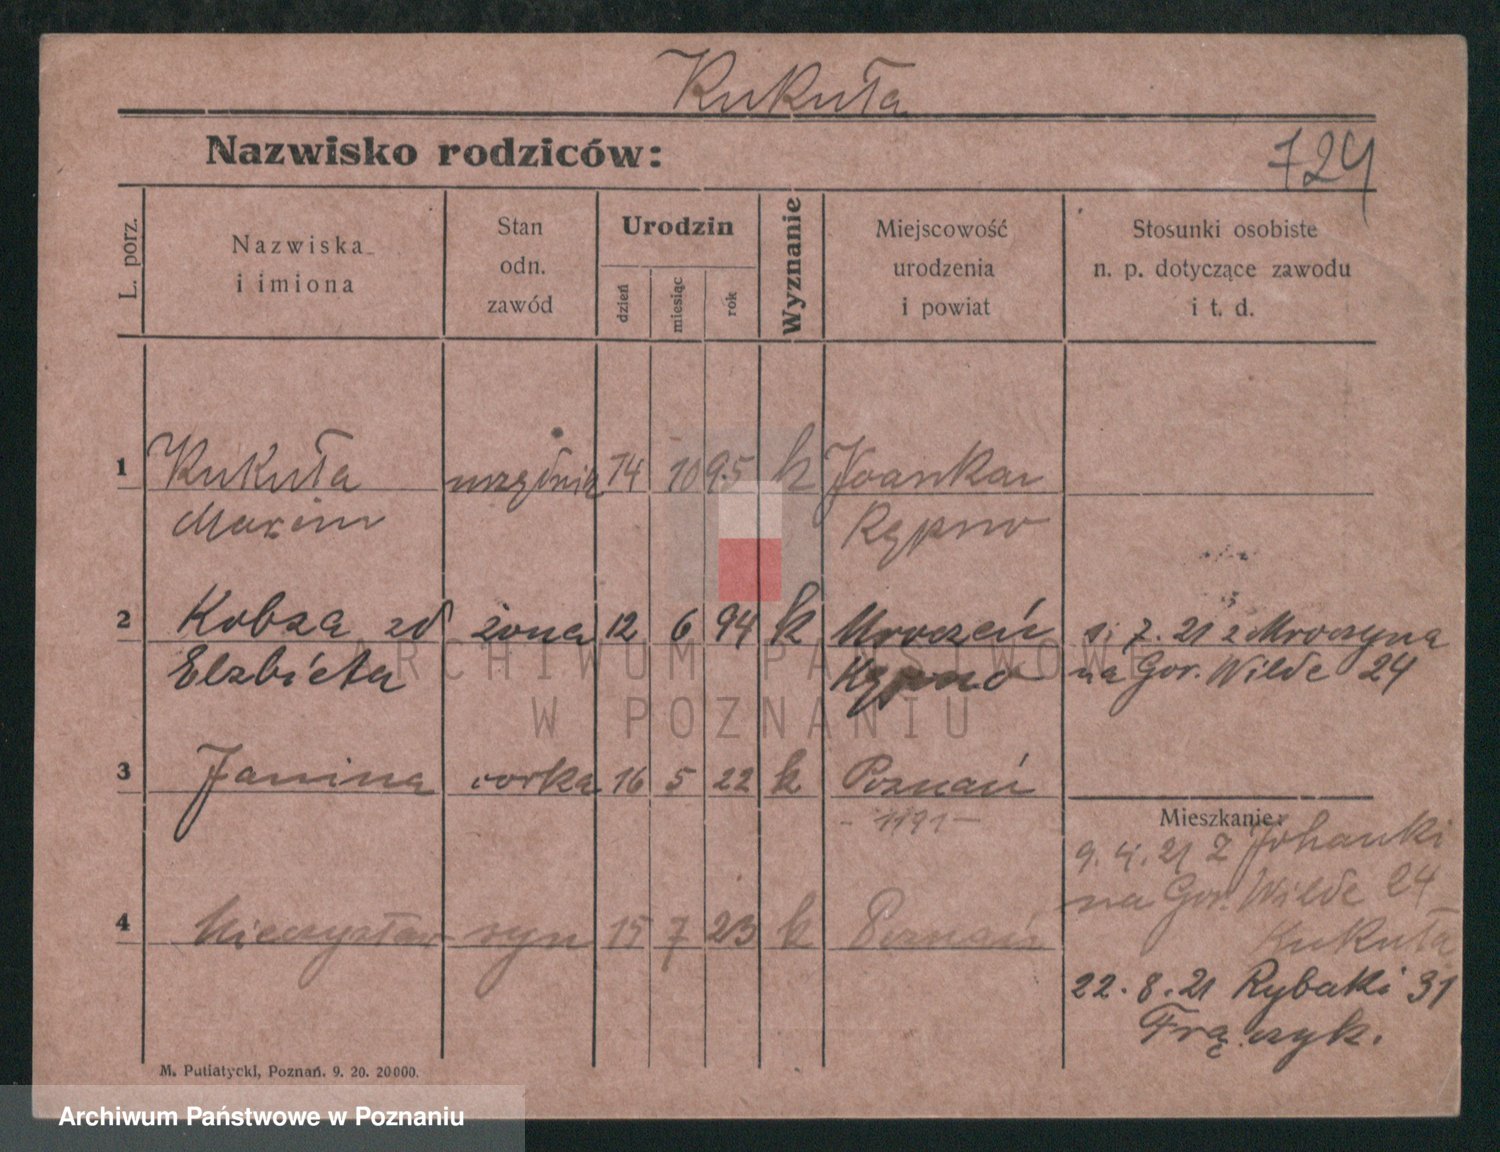 Kukuła
Nazwisko rodziców:
724
L. porz.
Nazwiska
i imiona
Stan
odn.
zawód
Urodzin
dzień
miesiąc
rok
Wyznanie
Miejscowość
urodzenia
i powiat
Stosunki osobiste
n. p. dotyczące zawodu
i t. d.
1 Kukuła urzędnik 14 10 95 k
Kępno
2 Kobza zd żona 12 6 94 k Mroczeń 7. 21 z Mroczyna
Elzbieta Kępno na Gór. Wilde 24
3 Janina corka 16 5 22 k Poznań
- 1191 -
Mieszkanie:
9. 4. 21 Z Johanki
na Gór. Wilde 24
4 Mieczysław syn 15 7 23 k Poznań
Kukuła
22. 8. 21 Rybaki 31
Frą.czyk.
M. Putiatycki, Poznań. 9. 20. 20000.
ARCHIWUM PAŃSTWOWE
W POZNANIU
Archiwum Państwowe w Poznaniu